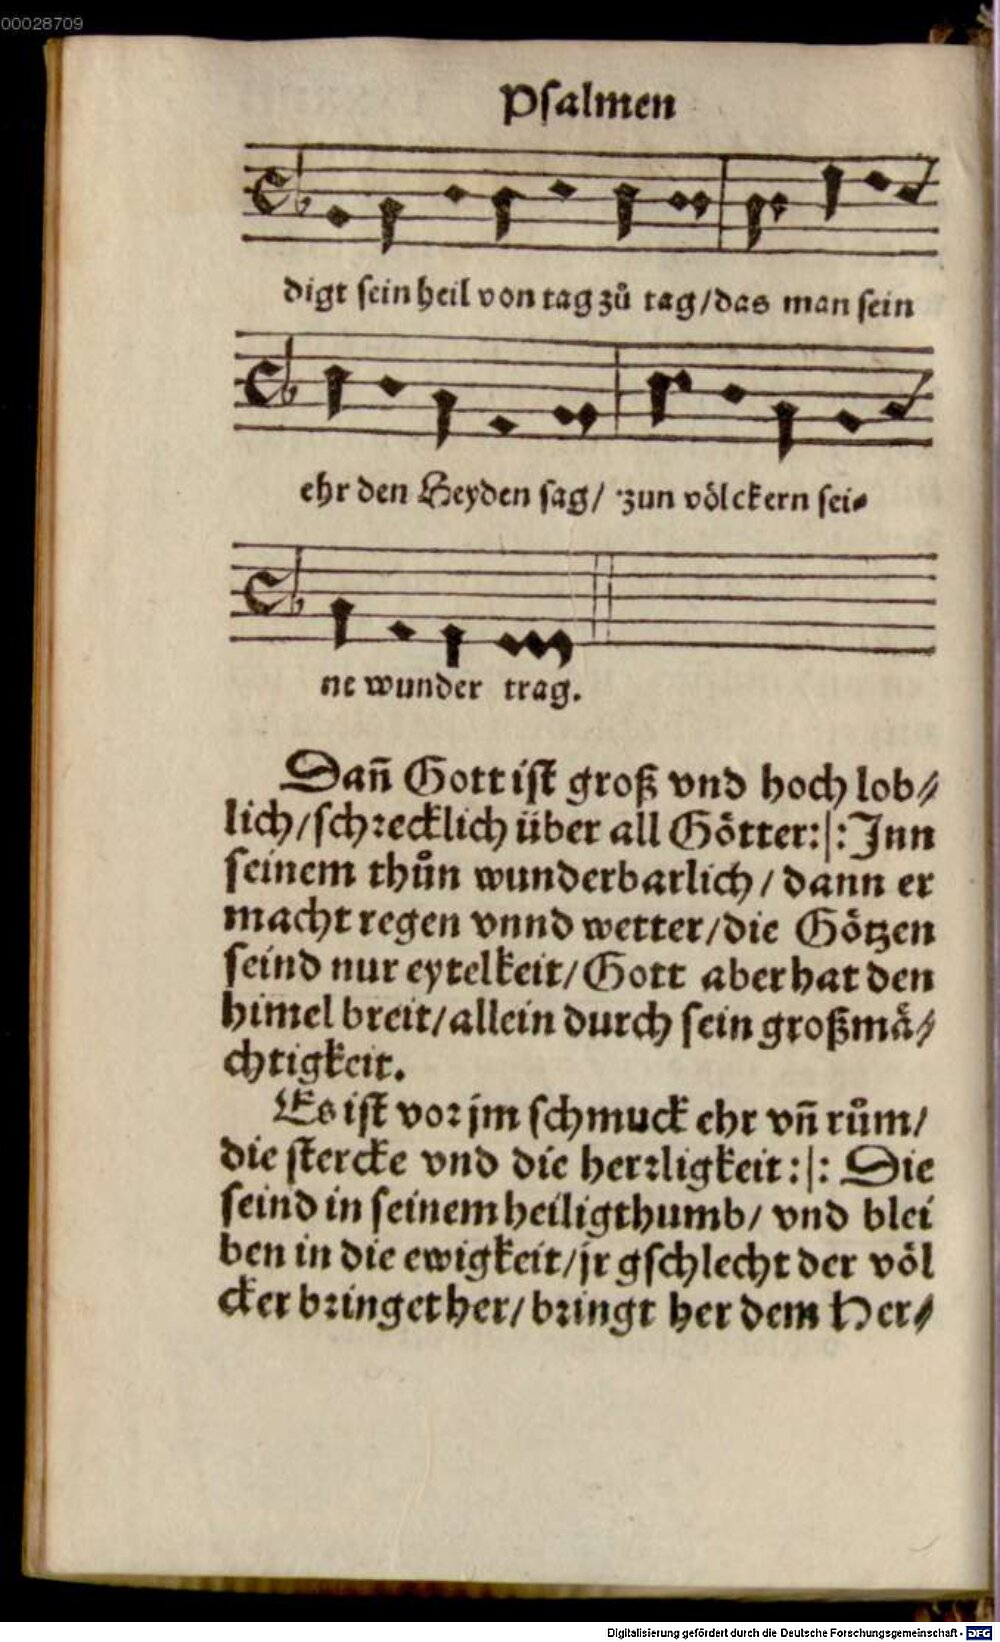 00028709
Psalmen
digt sein heil von tag zů tag/das man sein
ehr den Heyden sag/ zun völckern sei⸗
ne wunder trag.
Dañ Gott ist groß vnd hoch lob⸗
lich/schrecklich über all Götter:|: Inn
seinem thůn wunderbarlich/dann er
macht regen vnnd wetter/die Götzen
seind nur eytelkeit/Gott aber hat den
himel breit/allein durch sein großmä⸗
chtigkeit.
Es ist vor jm schmuck ehr vñ rům/
die stercke vnd die herrligkeit:|: Die
seind in seinem heiligthumb/ vnd blei
ben in die ewigkeit/jr gschlecht der völ
cker bringet her/bringt her dem Her⸗
Digitalisierung gefördert durch die Deutsche Forschungsgemeinschaft - DFG